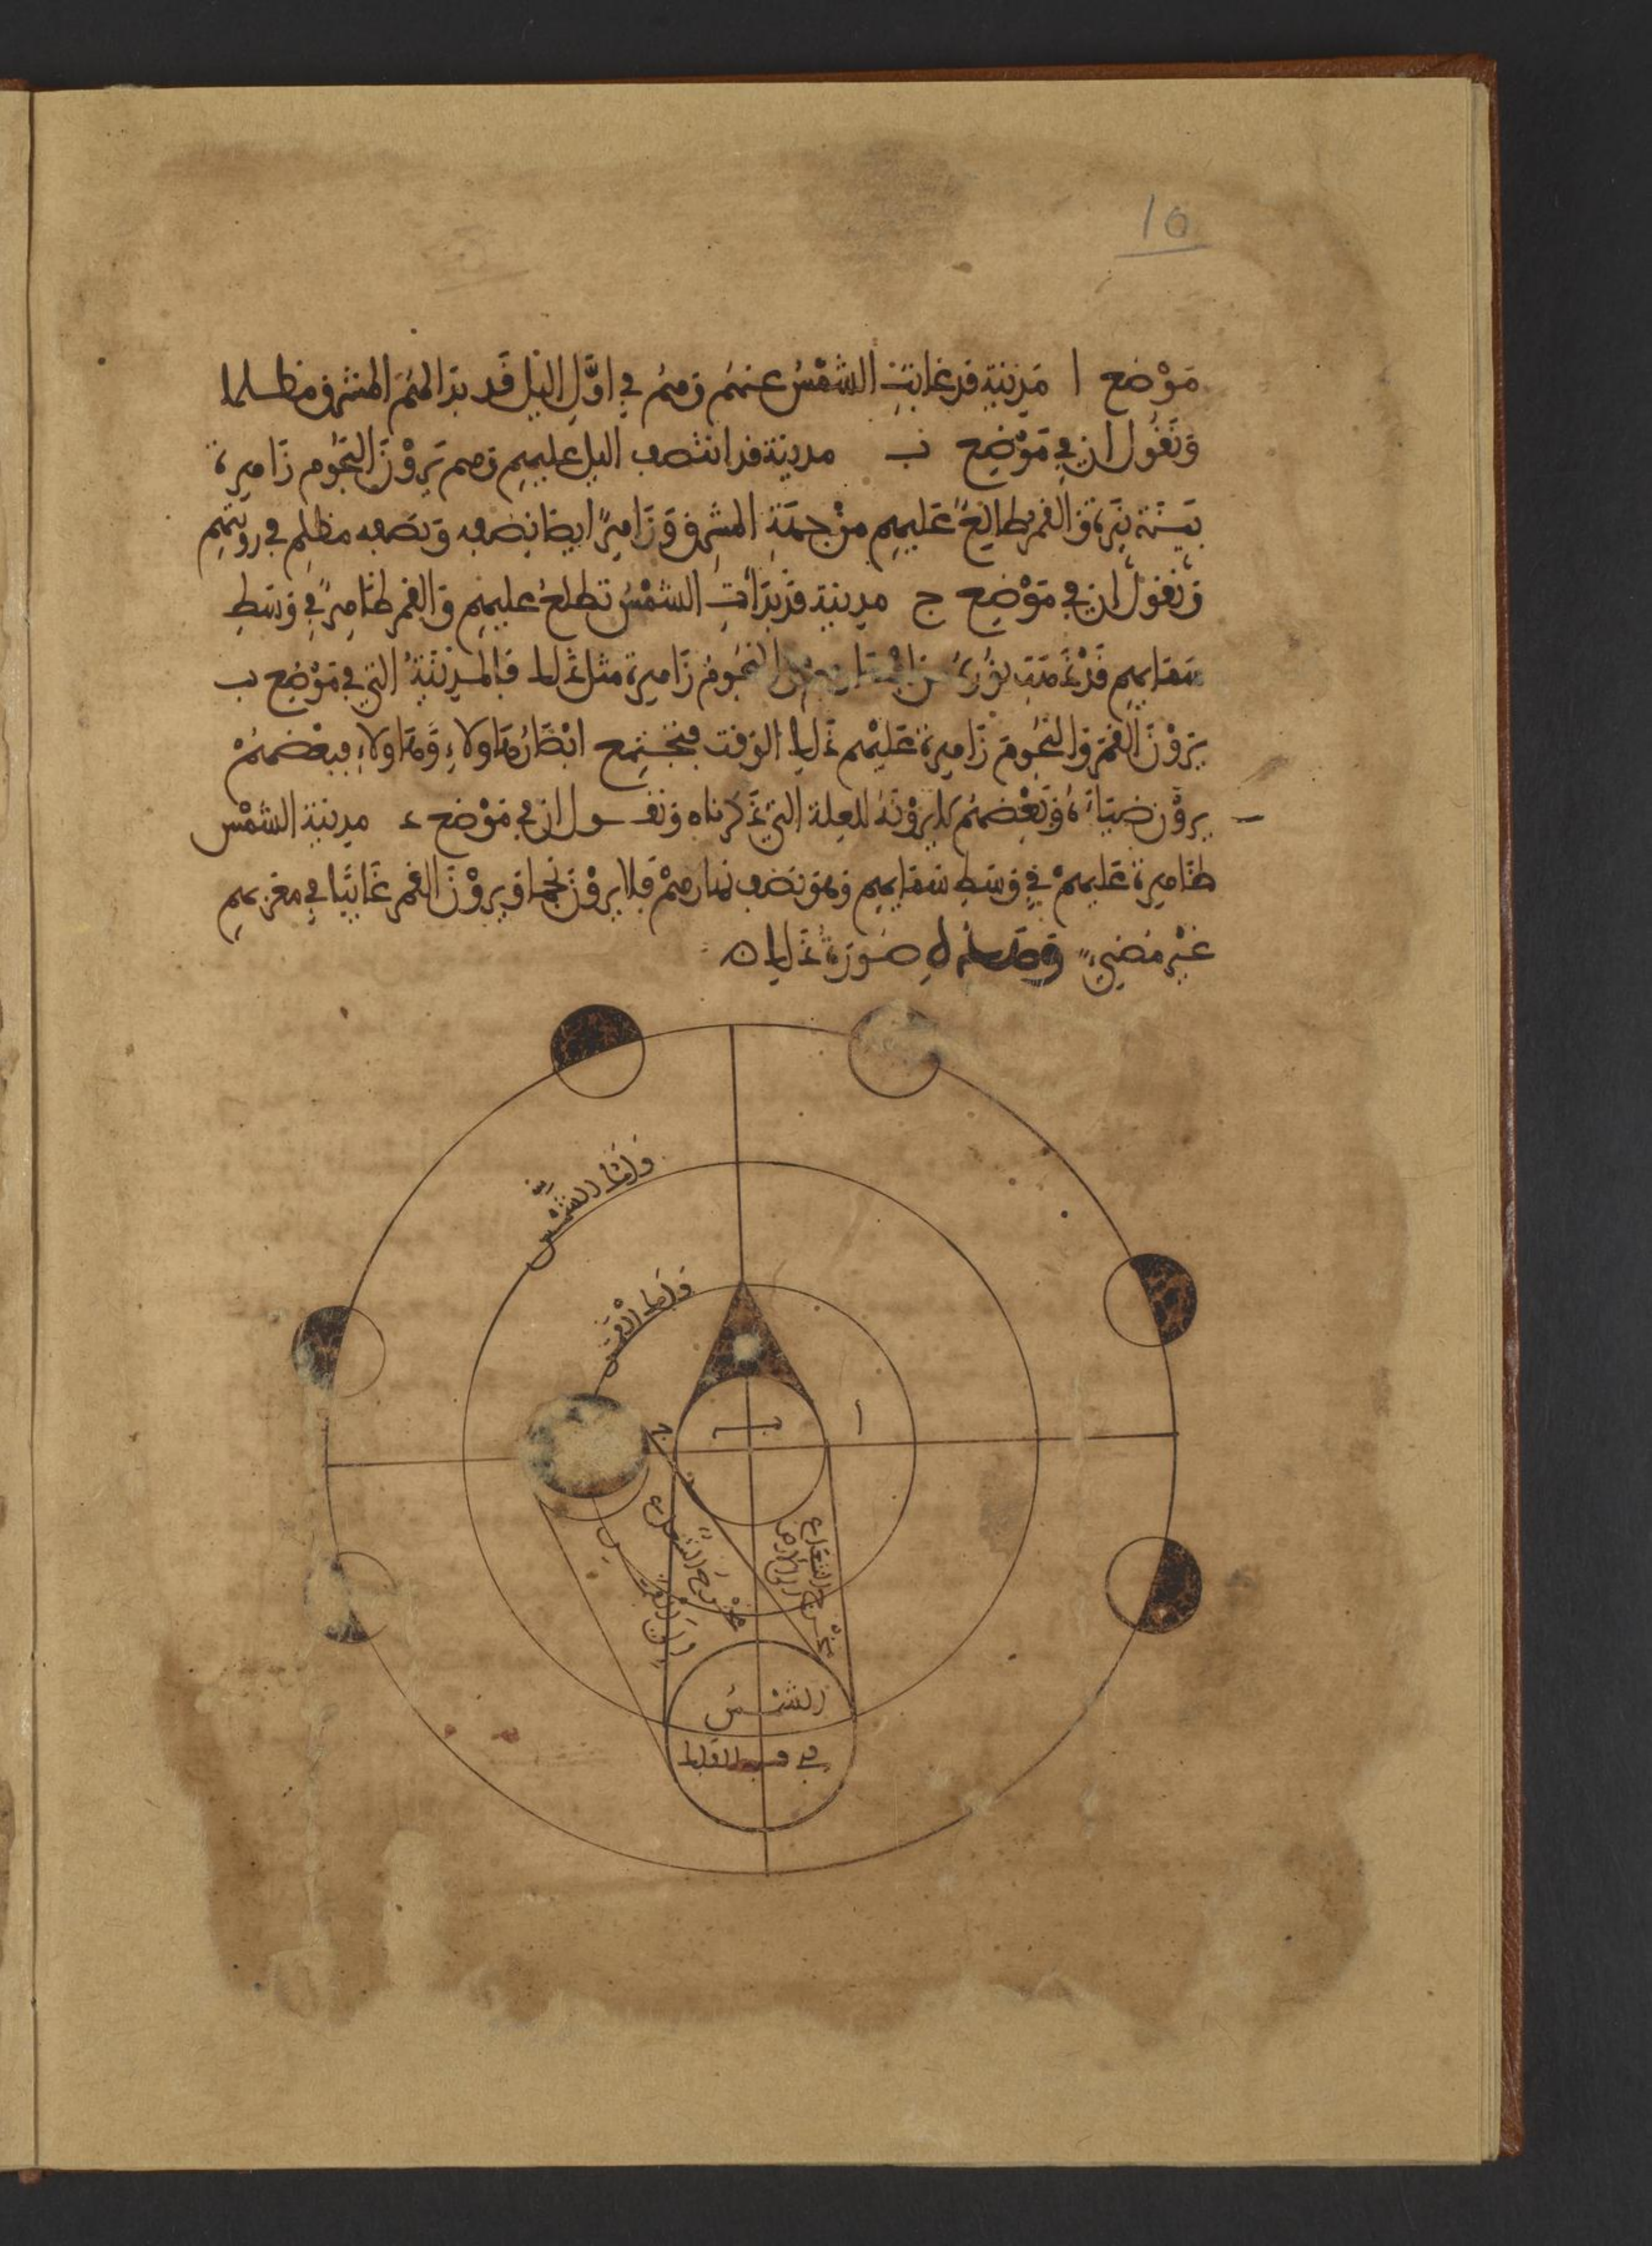 10
مَوْضع ا مَدِينَة قد غابَتِ الشَّمْسُ عنهُم وهُم في اوَّلِ اليل قَد بدَا لهُمُ المشرق مظلما
وَنَقُول ان في مَوْضِع ب مدينة قد انتصف اليل عليهِم وهم يَرَوْنَ النجُوم زَاهِرة
بَيِّنة نَيِّرة وَالقمر طالِعٌ عَليهِم مِنْ جِهَةِ المشرِق وَزَاهِرٌ ايضا نصْفه وَنصفه مظلم في رويتهِم
وَنقول ان في مَوْضِع ج مدينة قد بَدَأتِ الشَّمْسُ تطلعُ عليهِم وَالقمر ظَاهِرٌ في وَسَطِ
سَمَايهِم قَدْ ذَهَبَ نُورُهُ عن النجُومُ زَاهِرة مثل ذلك فالمدِينَةُ التي في مَوْضع ب
يَرَوْنَ القمَرَ وَالنجُومَ زَاهِرة عَليْهم ذلِك الوَقت فتجتمع ابْصَارُ هَاولاءِ وَهَاولاءِ فبعْضهُمْ
يروْنَ ضيَاءَهُ وَبَعْضهُم لا يَرَوْنَهُ للعِلة التي ذَكرناه وَنقول ان في مَوْضع د مدينة الشمْس
ظَاهِرة عَليهمْ في وَسَطِ سَمَايهِم وَهوَ نصْف نهارهمْ فلا يروْنَ نجما وَيروْنَ القمر غَائبًا في مغربهِم
غيْر مُضِيءٍ وَهَذه صُورَةُ ذَلِك
فَلَك الشَّمْسِ
فَلَك القمَر
ا
ب
ج
د
مخْرج الشعَاع الى الارض
مخْرج الشعَاع الى القمر
الشمْسُ
في وسط الفلك